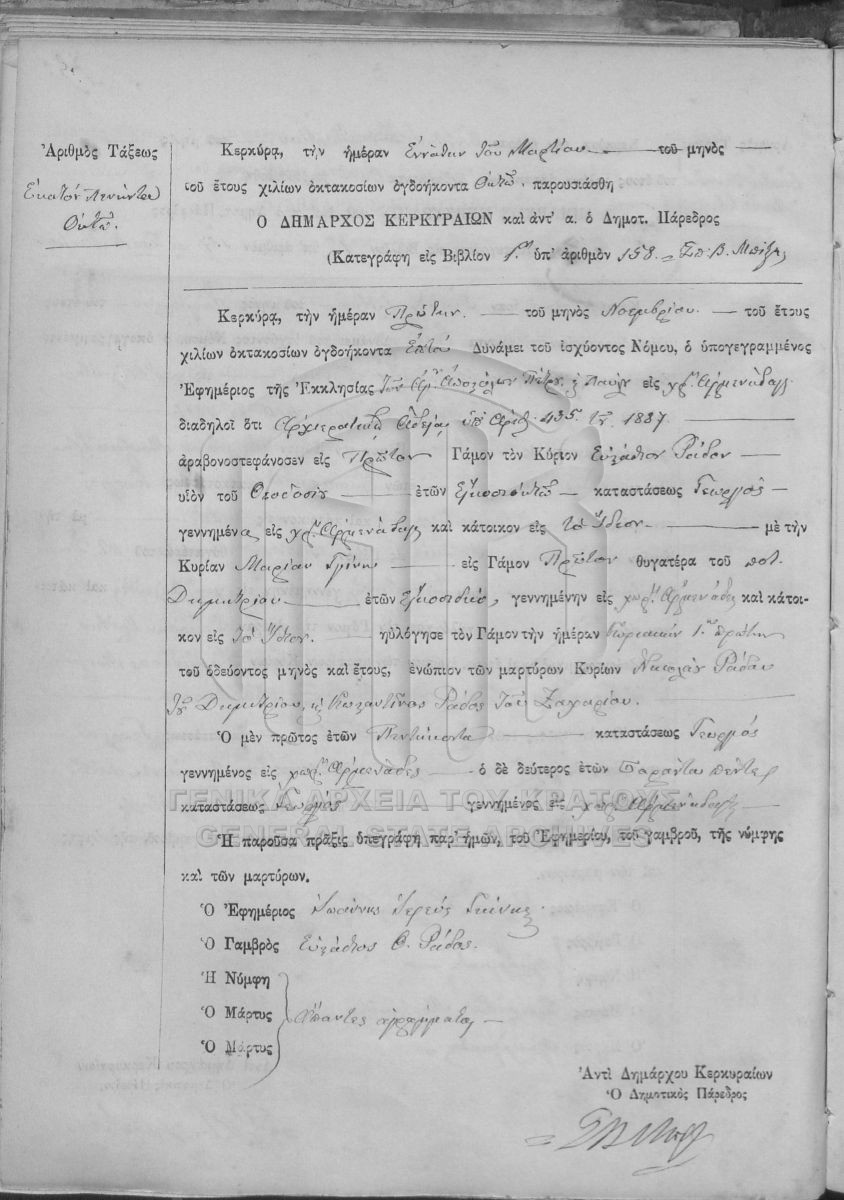 Ἀριθμὸς Τάξεως
Ἑκατόν πενῆντα
Ὀκτὼ.
Κερκύρᾳ, τὴν ἡμέραν Ἐννάτην τοῦ Μαρτίου τοῦ μηνὸς
τοῦ ἔτους χιλίων ὀκτακοσίων ὀγδοήκοντα Ὀκτὼ. παρουσιάσθη
Ὁ ΔΗΜΑΡΧΟΣ ΚΕΡΚΥΡΑΙΩΝ καὶ ἀντ' α. ὁ Δημοτ. Πάρεδρος
(Κατεγράφη εἰς Βιβλίον 1ον ὑπ' ἀριθμὸν 158
Κερκύρᾳ, τὴν ἡμέραν Πρώτην. τοῦ μηνὸς Νοεμβρίου. τοῦ ἔτους
χιλίων ὀκτακοσίων ὀγδοήκοντα Ἑπτὰ Δυνάμει τοῦ ἰσχύοντος Νόμου, ὁ ὑπογεγραμμένος
Ἐφημέριος τῆς Ἐκκλησίας τῶν Ἁγ. Ἀποστόλων Πέτρου κ Παύλου εἰς χρ. Ἀρμενάδες
διαδηλοῖ ὅτι Ἀρχιερατικῇ Ἀδείᾳ ὑπ' ἀριθ. 435. 1887.
ἀραβονοστεφάνοσεν εἰς Πρῶτον Γάμον τὸν Κύριον Εὐστάθιον Ράδον
υἱὸν τοῦ Θεοδοσίου ἐτῶν Εἰκοσιοκτὼ καταστάσεως Γεωργὸς
γεννημένα εἰς χρ. Ἀρμενάδες καὶ κάτοικον εἰς τὸ Ἴδιον μὲ τὴν
Κυρίαν Μαρίαν εἰς Γάμον Πρῶτον θυγατέρα τοῦ ποτ.
Δημητρίου ἐτῶν Εἰκοσιδύο, γεννημένην εἰς χωρ. Ἀρμενάδες καὶ κάτοι-
κον εἰς Τὸ Ἴδιον. ηὐλόγησε τὸν Γάμον τὴν ἡμέραν Κυριακὴν 1ην πρώτην
τοῦ ὁδεύοντος μηνὸς καὶ ἔτους, ἐνώπιον τῶν μαρτύρων Κυρίων Νικολάου Ράδου
τοῦ Δημητρίου, κ Κωσταντῖνος Ράδος τοῦ Ζαχαρίου.
Ὁ μὲν πρῶτος ἐτῶν Πεντήκοντα καταστάσεως Γεωργός
γεννημένος εἰς χωρ. Ἀρμενάδες ὁ δὲ δεύτερος ἐτῶν Σαράντα πέντε
καταστάσεως Γεωργός γεννημένος εἰς χωρ. Ἀρμενάδες
ΓΕΝΙΚΑ ΑΡΧΕΙΑ ΤΟΥ ΚΡΑΤΟΥΣ
GENERAL STATE ARCHIVES
Ἡ παροῦσα πρᾶξις ὑπεγράφη παρ' ἡμῶν, τοῦ Ἐφημερίου, τοῦ γαμβροῦ, τῆς νύμφης
καὶ τῶν μαρτύρων.
Ὁ Ἐφημέριος Ἰωάννης Ἱερεὺς
Ὁ Γαμβρὸς Εὐστάθιος Θ. Ράδος.
Ἡ Νύμφη
Ὁ Μάρτυς Ἅπαντες ἀγράμματοι
Ὁ Μάρτυς
Ἀντὶ Δημάρχου Κερκυραίων
Ὁ Δημοτικὸς Πάρεδρος